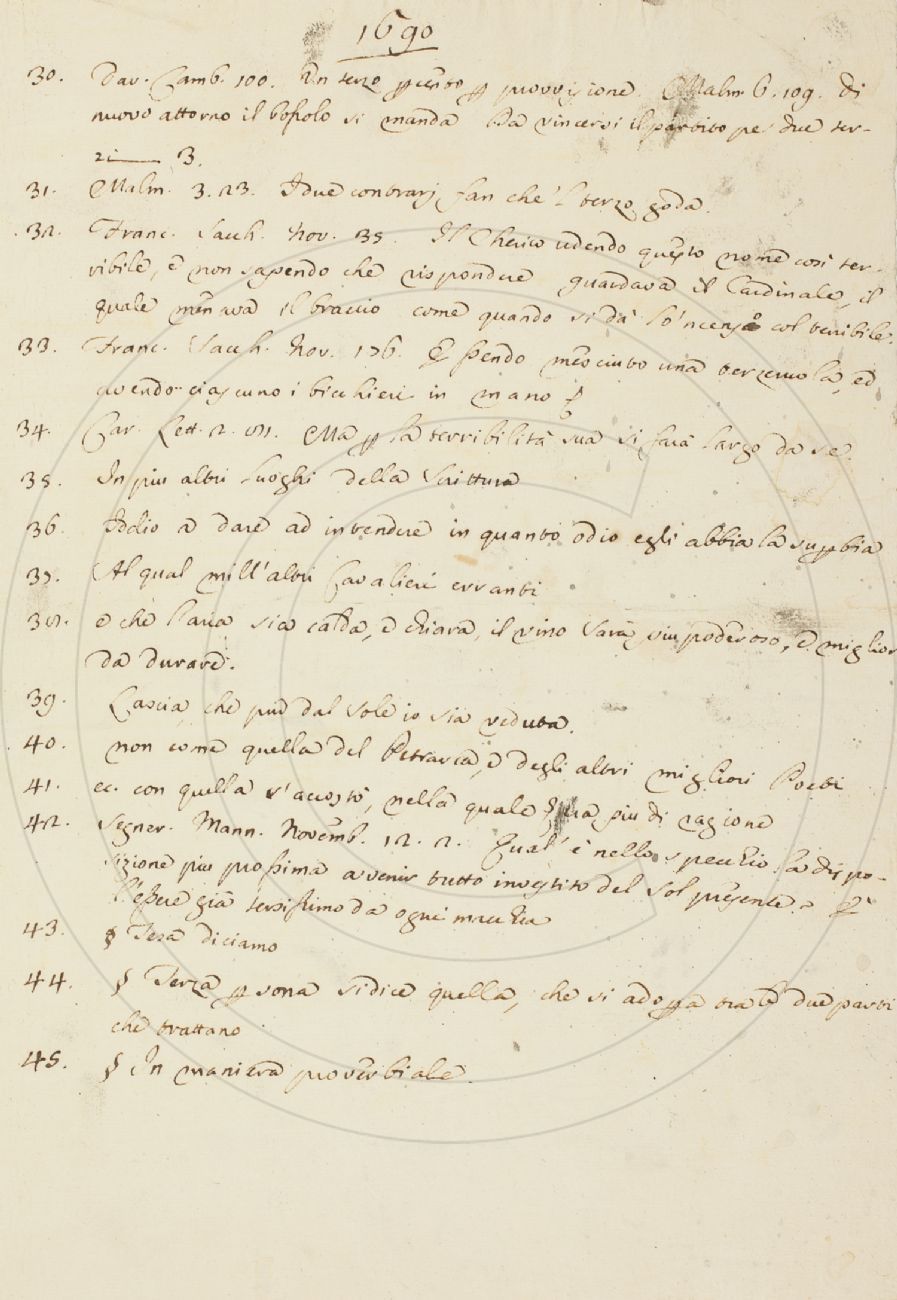 1690
30. Dav. Camb. 100. Un terzo per cento per provvisione. Malm. 6. 109. Di
nuovo attorno il bossolo si manda Da vincersi il partito pe' due ter-
zi —— 3.
31. Malm. 3. 23. I due contrarj fan che 'l terzo goda.
32. Franc. Sacch. Nov. 35. Il Cherico udendo questo nome così ter-
ribile, e non sapendo che rispondere guardava il Cardinale, il
quale menava il braccio come quando si dà lo 'ncenso col teribile.
33. Franc. Sacch. Nov. 176. Essendo mesciuto una terzeruola, ed
avendo ciascuno i bicchieri in mano
34. Car. Lett. 2. Ma per la terribilità sua si farà largo da se
35. In piu altri luoghi della Scrittura
36. Iddio a dare ad intendere in quanto odio egli abbia la superbia
37. Al qual mill' altri Cavalieri erranti
38. e che l'aria sia calda, e chiara, il vino sarà piu poderoso, e miglior
da durare.
39. Lascia, che può dal Sole io sia veduta.
40. non come quella del Petrarca, e degli altri migliori Poeti
41. ec. con quella s' accostò, nella quale era piu di ragione
42. Segner. Mann. Novemb. 12. 2. Qual' è nello specchio la dispo-
sizione piu prossima a venir tutto investito del Sol presente?
l'essere già tersissimo da ogni macchia
43. § Tesa diciamo
44. § Terza persona si dice quella, che si adopera tra le due parti
che trattano
45. § In maniera proverbiale.